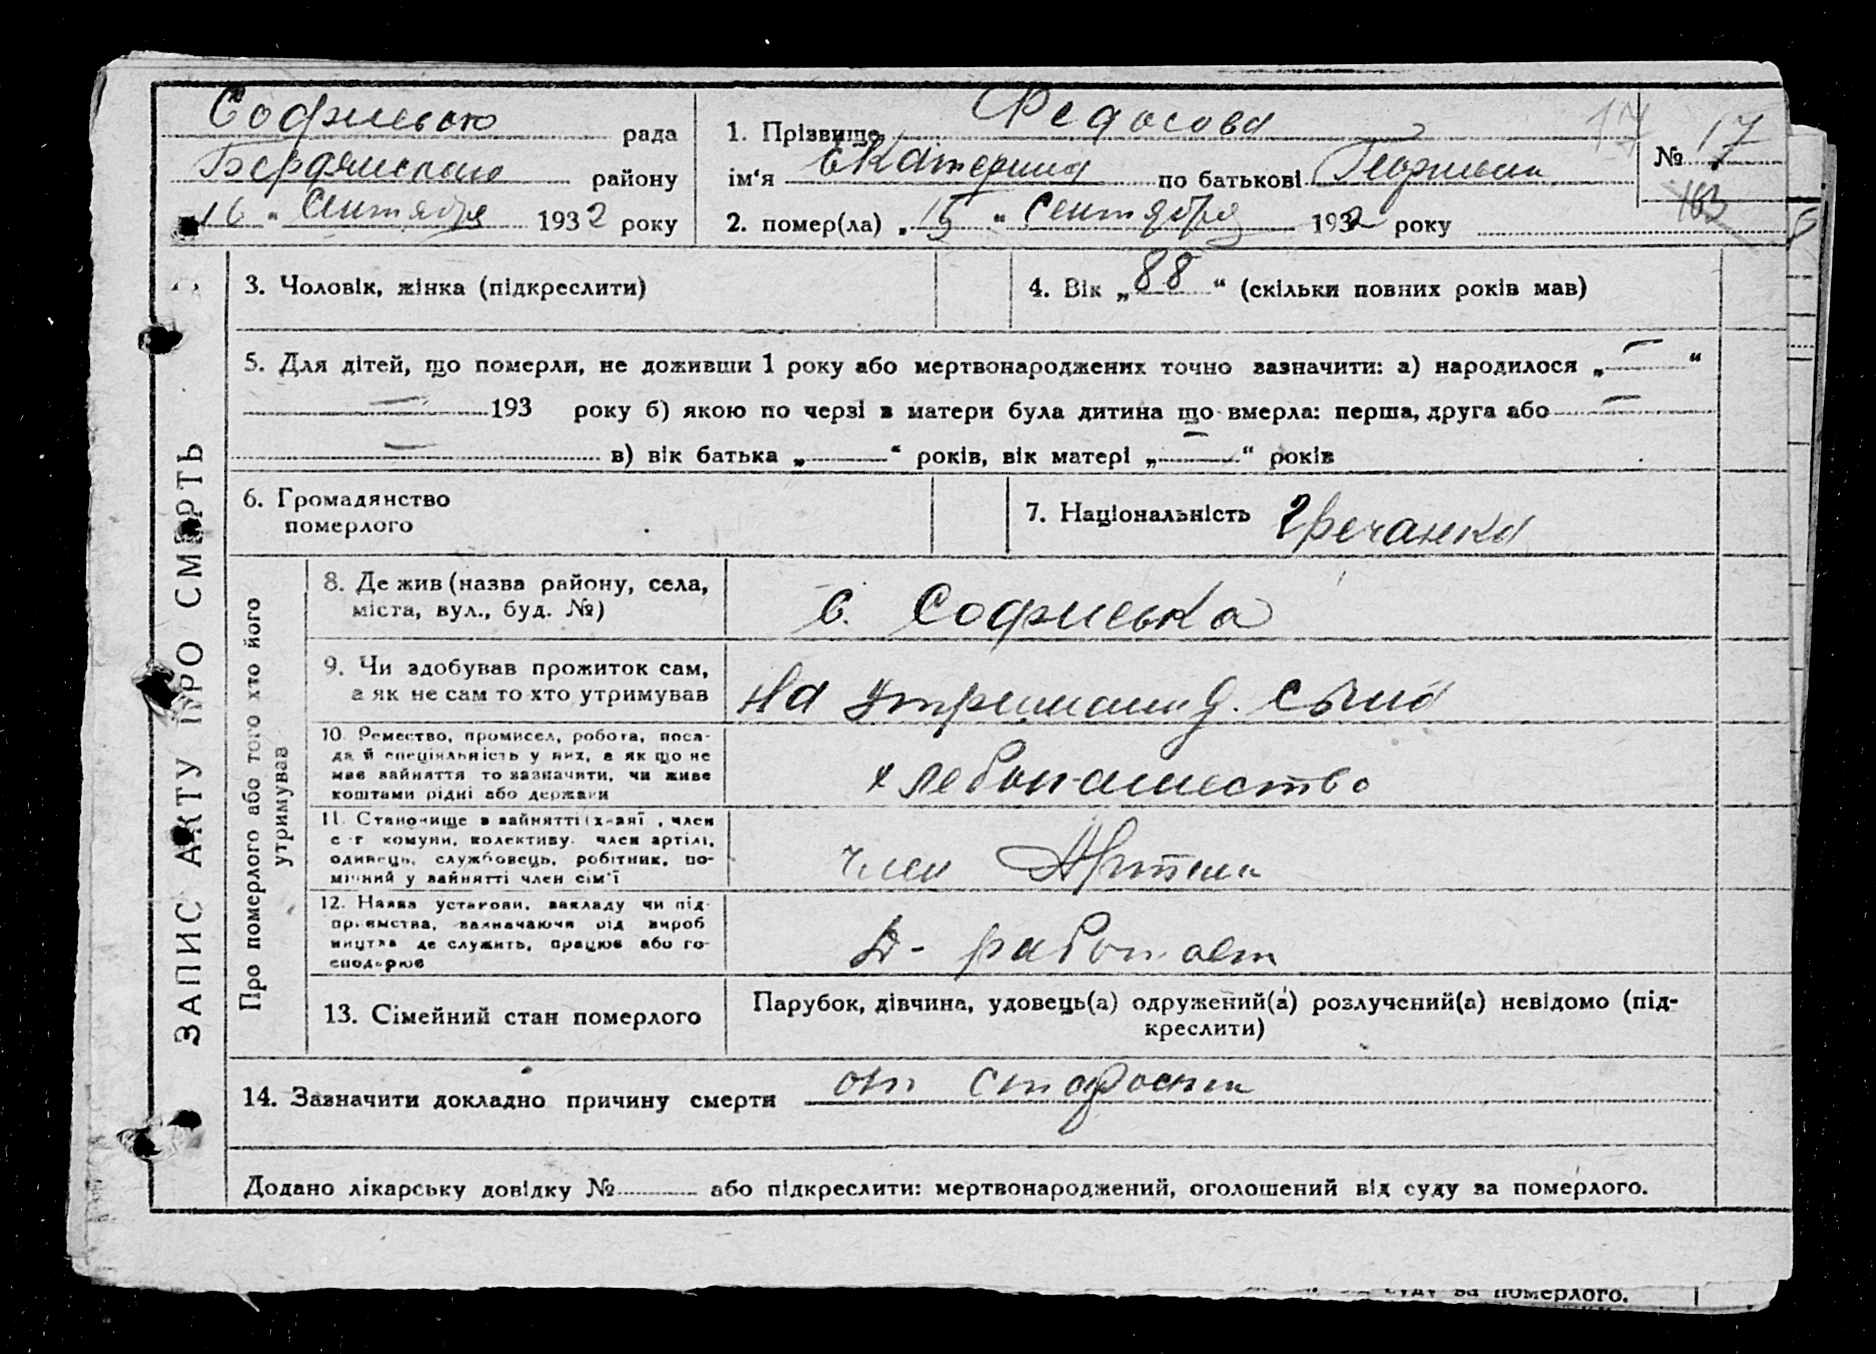 Софиевою рада
Бердянского району
„16„ Сентября 1932 року
1. Прізвище Федосова
ім'я Екатерина по батькові Георгиевн
2. помер(ла) „15„ Сентября 1932 року
17
№ 17
163
ЗАПИС АКТУ ПРО СМЕРТЬ
3. Чоловік, жінка (підкреслити)
4. Вік „88“ (скільки повних років мав)
5. Для дітей, що померли, не доживши 1 року або мертвонароджених точно зазначити: а) народилося „—“
— 193 року б) якою по черзі в матери була дитина що вмерла: перша, друга або —
— в) вік батька „ “ років, вік матері „—“ років
6. Громадянство
померлого
7. Національність Гречанка
Про померлого або того хто його
утримував
8. Де жив (назва району, села,
міста, вул., буд. №)
с. Софиевка
9. Чи здобував прожиток сам,
а як не сам то хто утримував
на утримании сына
10. Ремество, промисел, робота, поса-
да й спеціяльність у них, а як що не
має зайняття то зазначити, чи живе
коштами рідні або держави
хлебопашество
11. Становище в зайнятті (х-зяї , член
с-г комуни, колективу. член артілі,
одинець, службовець, робітник, по-
мічний у зайнятті член сім'ї
член Артели
12. Назва установи, закладу чи під-
приємства, зазначаючи рід вироб
ництва де служить, працює або го-
сподарює
работает
13. Сімейний стан померлого
Парубок, дівчина, удовець(а) одружений(а) розлучений(а) невідомо (під-
креслити)
14. Зазначити докладно причину смерти от старости
Додано лікарську довідку № або підкреслити: мертвонароджений, оголошений від суду за померлого.
суду за померлого.